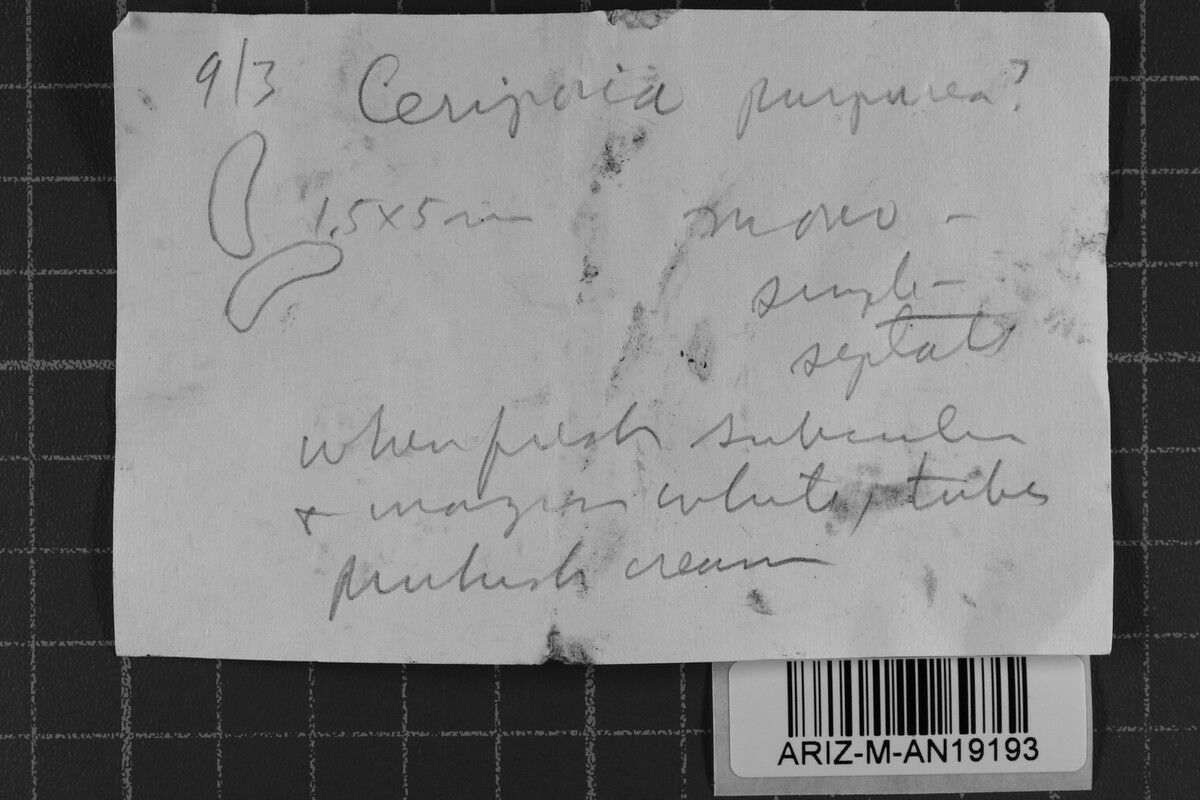 9/3 Ceriporia purpurea?
1.5x5 m
mono -
simple -
septate
when fresh subiculum
& margin white, tubes
pinkish cream
ARIZ-M-AN19193